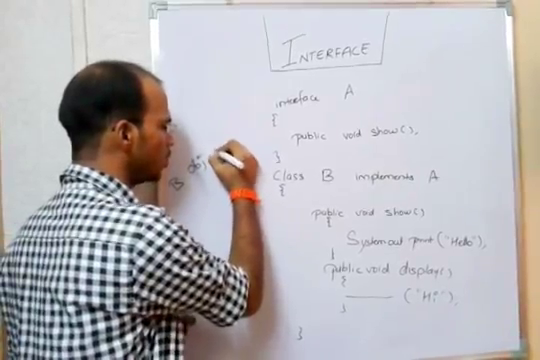 INTERFACE
interface A
{
public void show();
}
Class B implements A
{
public void show()
{
System.out.print("Hello");
}
public void display()
{
——— ("Hi");
}
}
B obj